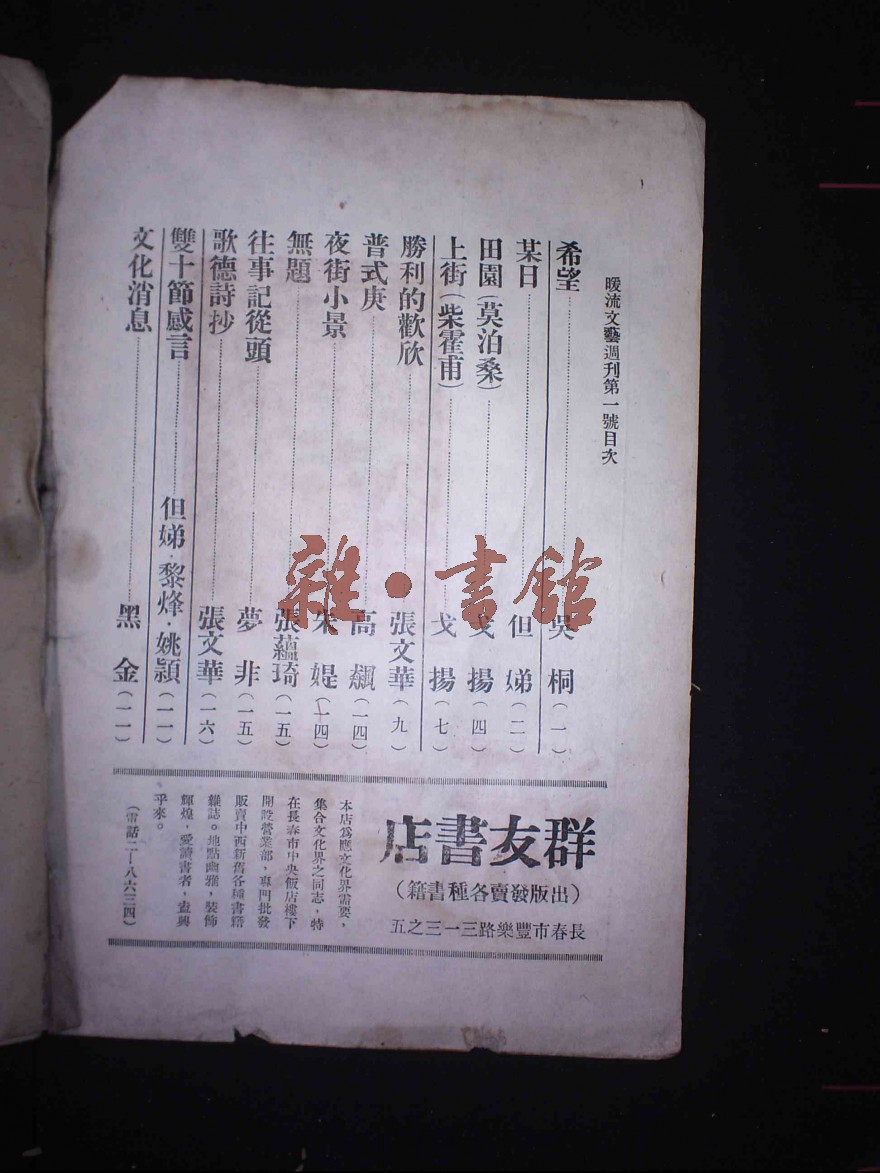 暖流文藝週刊第一號目次
希望 吳桐(一)
某日 但娣(二)
田園(莫泊桑) 戈揚(四)
上街(柴霍甫) 戈揚(七)
勝利的歡欣 張文華(九)
普式庚 高飆(一四)
夜街小景 朱媞(一四)
無題 張蘊琦(一五)
往事記從頭 夢非(一五)
歌德詩抄 張文華(一六)
雙十節感言 但娣·黎烽·姚潁(一一)
文化消息 黑金(一一)
雜·書館
群友書店
(出版發賣各種書籍)
長春市豐樂路三一三之五
本店爲應文化界需要,
集合文化界之同志,特
在長春市中央飯店樓下
開設營業部,專門批發
販賣中西新舊各種書籍
雜誌。地點幽雅,裝飾
輝煌,愛讀書者,盍興
乎來。
(電話二—八六三四)